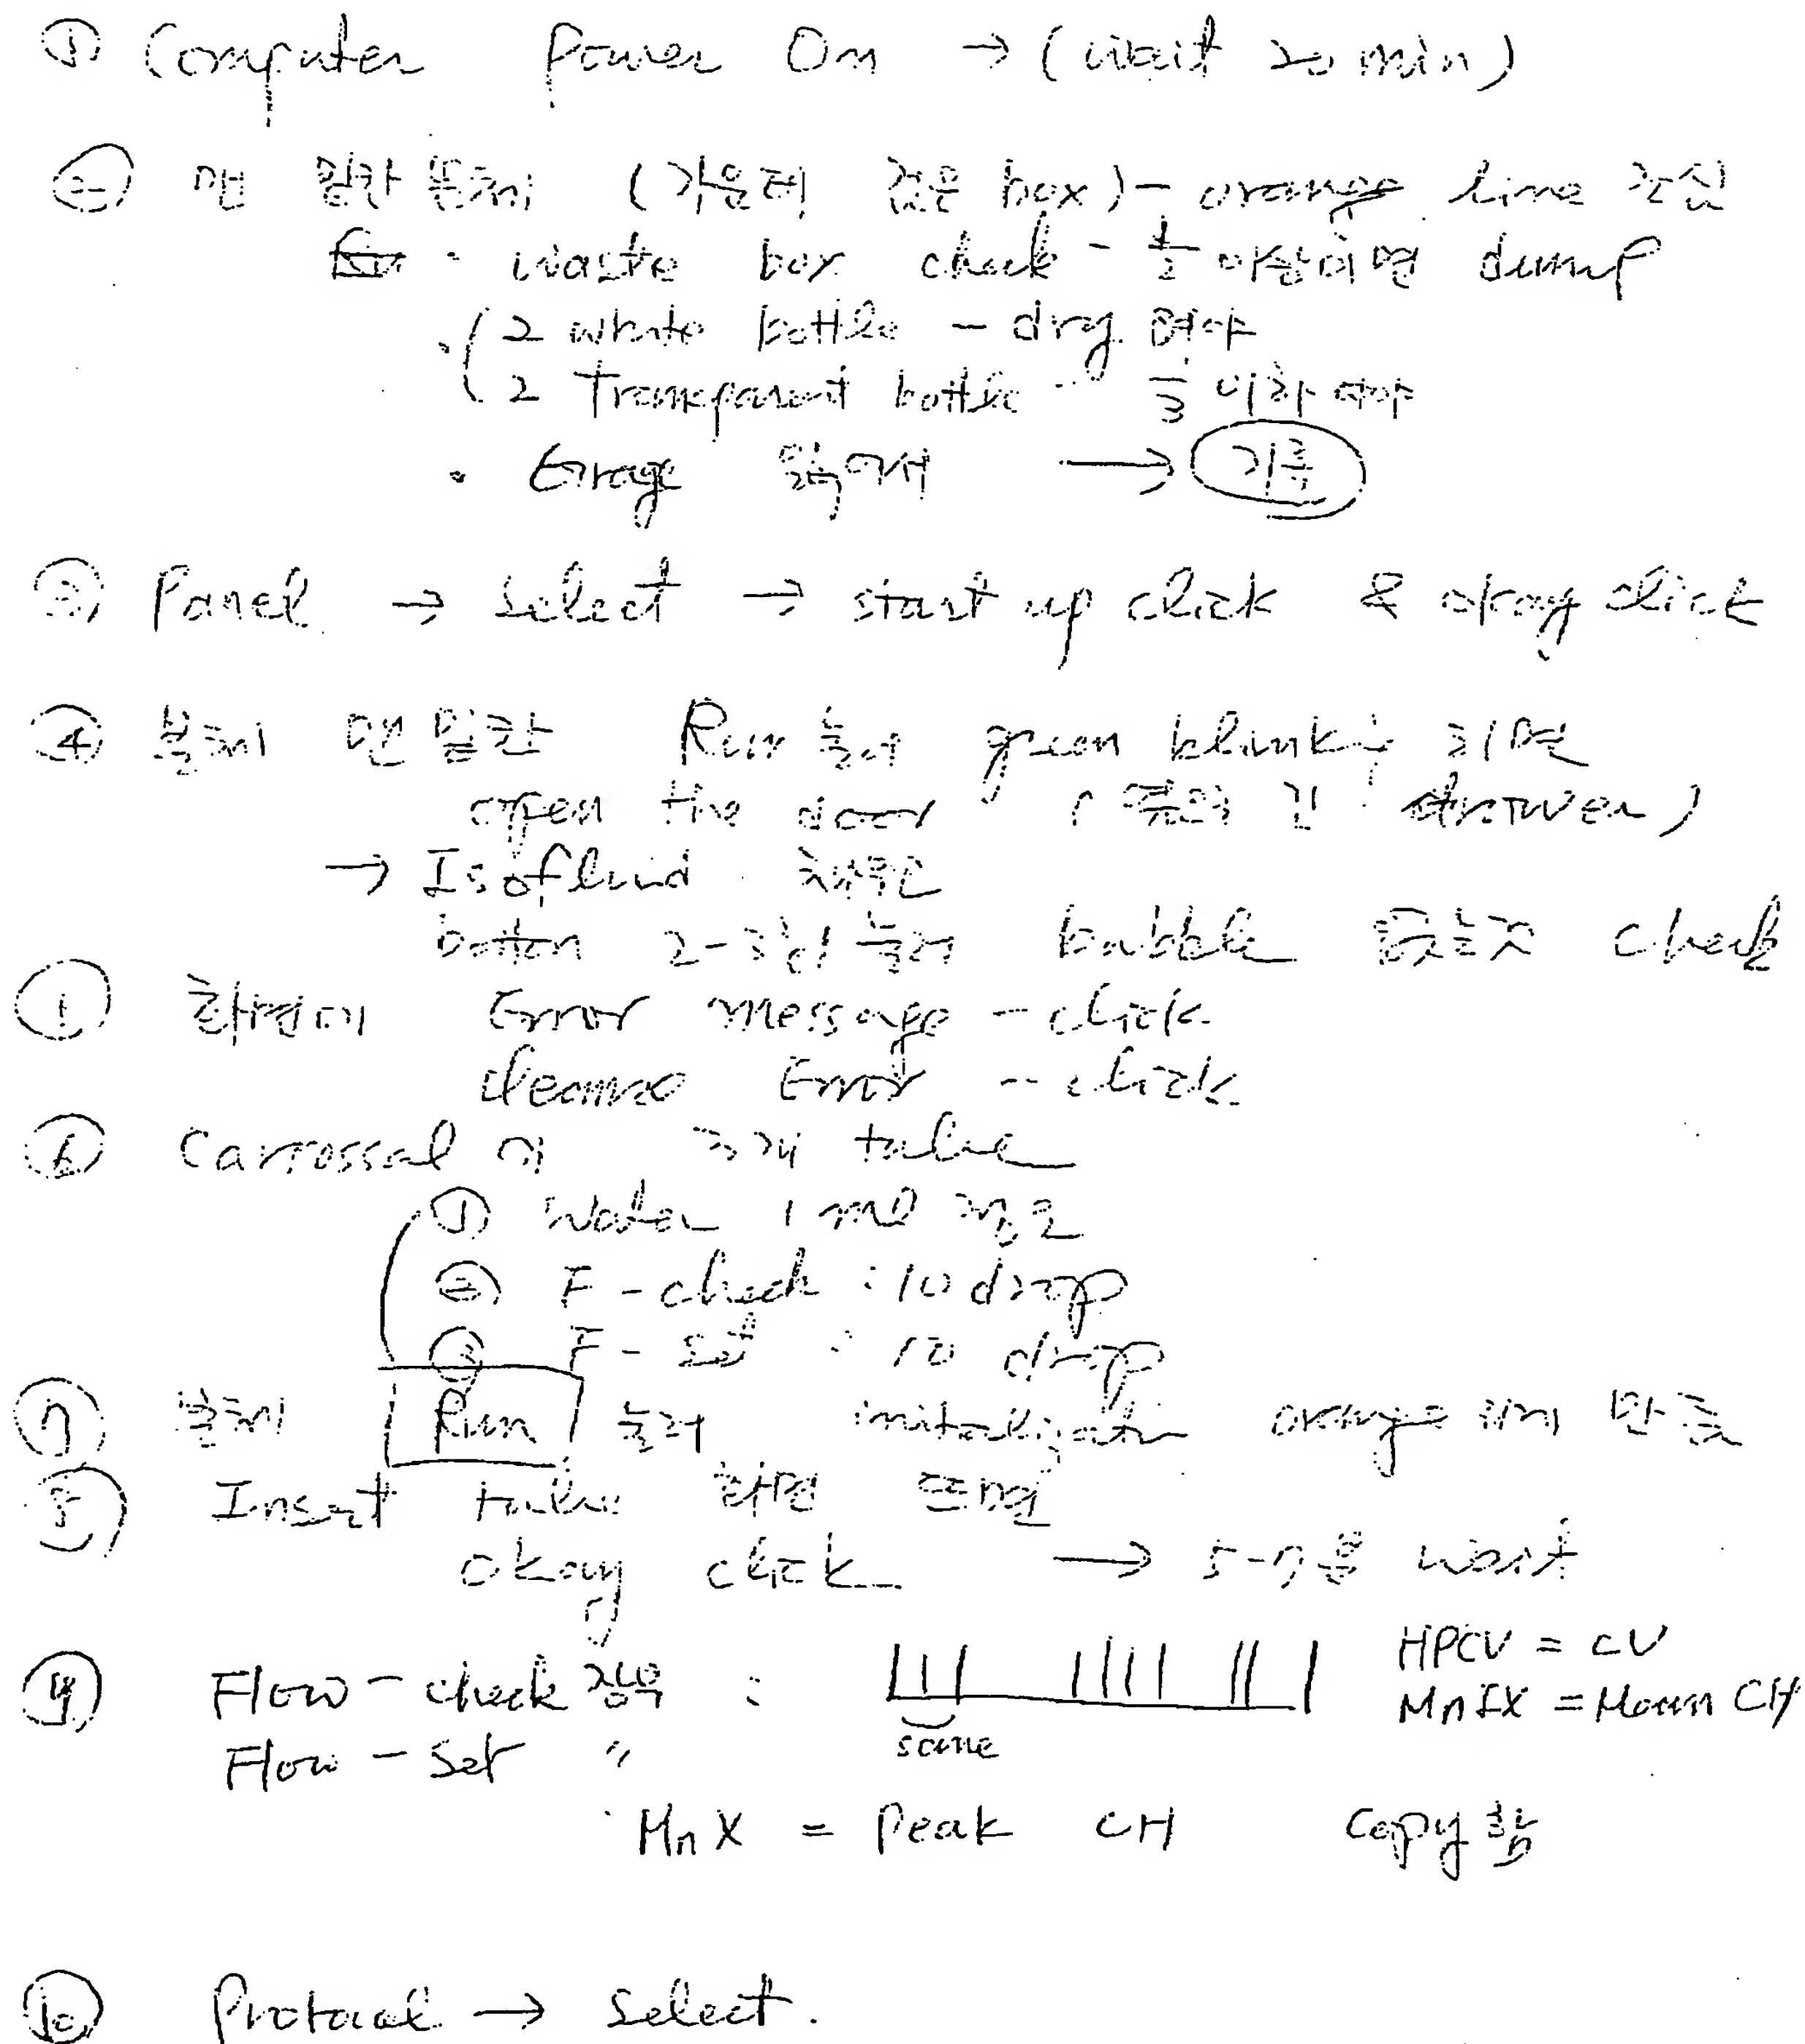 ① Computer Power On → (wait 20 min)
② 맨 밑칸 왼쪽에 (가운데 검은 box) - orange line
· waste box check - ½ 이상이면 dump
· ( 2 white bottle - dry 여야
2 Transparent bottle - 이하 여야
· 읽어서 → 기록
③ Panel → select → start up click & okay click
④ 맨 밑칸 Run 눌러 green blink 되면
open the door ( drawer )
→ Isofluid 채우고
botton 2-3번 눌러 bubble 없는지 check
화면에 Error message - click
Error - click
⑥ Carrossal 에 3개 tube
① Water 1 ml 정도
② F - check : 10 drop
③ F - set : 10 drop
⑦ Run 눌러 orange
⑧ Insert tube 화면 뜨면
okay click → 5-7분 wait
Flow - check 경우 : HPCV = CV
MnIX = Mean CH
same
Flow - Set 〃
MnX = Peak CH Copy
⑩ Protocol → Select.